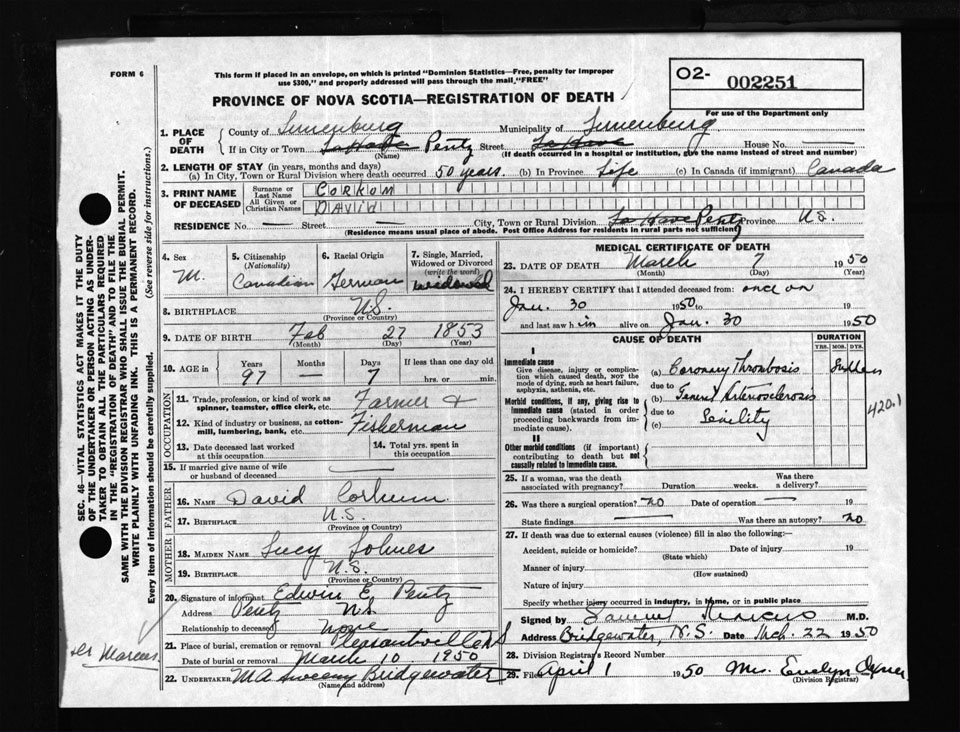 FORM 6
This form if placed in an envelope, on which is printed "Dominion Statistics—Free, penalty for improper
use $300," and properly addressed will pass through the mail "FREE"
O2- 002251
For use of the Department only
PROVINCE OF NOVA SCOTIA—REGISTRATION OF DEATH
1. PLACE OF DEATH
County of Lunenburg Municipality of Lunenburg
If in City or Town LaHave Pentz Street LaHave House No. —
(Name) (If death occurred in a hospital or institution, give the name instead of street and number)
2. LENGTH OF STAY (in years, months and days)
(a) In City, Town or Rural Division where death occurred 50 years. (b) In Province Life (c) In Canada (if immigrant) Canada
3. PRINT NAME OF DECEASED
Surname or Last Name CORKUM
All Given or Christian Names DAVID
RESIDENCE No. — Street — City, Town or Rural Division La Have Pentz Province N.S.
(Residence means usual place of abode. Post Office Address for residents in rural parts not sufficient)
4. Sex M.
5. Citizenship (Nationality) Canadian
6. Racial Origin German
7. Single, Married, Widowed or Divorced (write the word) Widowed
8. BIRTHPLACE N.S.
(Province or Country)
9. DATE OF BIRTH Feb 27 1853
(Month) (Day) (Year)
10. AGE in Years 97 Months Days 7 If less than one day old
hrs. or min.
OCCUPATION
11. Trade, profession, or kind of work as
spinner, teamster, office clerk, etc. Farmer &
12. Kind of industry or business, as cotton-
mill, lumbering, bank, etc. Fisherman
13. Date deceased last worked
at this occupation
14. Total yrs. spent in
this occupation
15. If married give name of wife
or husband of deceased —
FATHER
16. NAME David Corkum
17. BIRTHPLACE N.S.
(Province or Country)
MOTHER
18. MAIDEN NAME Lucy
19. BIRTHPLACE N.S.
(Province or Country)
20. Signature of informant Edwin E. Pentz
Address Pentz N.S.
Relationship to deceased none
21. Place of burial, cremation or removal Pleasantville N.S
Date of burial or removal March 10 1950
22. UNDERTAKER M A Sweeny Bridgewater
(Name and address)
MEDICAL CERTIFICATE OF DEATH
23. DATE OF DEATH March 7 1950
(Month) (Day) (Year)
24. I HEREBY CERTIFY that I attended deceased from: once on
Jan. 30 1950 to 19
and last saw h im alive on Jan. 30 1950
CAUSE OF DEATH
DURATION
YRS. MOS. DYS.
I
Immediate cause
Give disease, injury or complica-
tion which caused death, NOT the
mode of dying, such as heart failure,
asphyxia, asthenia, etc.
(a) Coronary Thrombosis Sudden
due to
Morbid conditions, if any, giving rise to
immediate cause (stated in order
proceeding backwards from im-
mediate cause).
(b) General Arteriosclerosis
due to
(c) Senility
420.1
II
Other morbid conditions (if important)
contributing to death but not
causally related to immediate cause.
25. If a woman, was the death
associated with pregnancy? Duration weeks. Was there
a delivery?
26. Was there a surgical operation? no Date of operation — 19
State findings — Was there an autopsy? no
27. If death was due to external causes (violence) fill in also the following:—
Accident, suicide or homicide? Date of injury 19
(State which)
Manner of injury
(How sustained)
Nature of injury
Specify whether injury occurred in industry, in home, or in public place
Signed by Samuel Marcus M.D.
Address Bridgewater, N.S. Date Mch. 22 1950
28. Division Registrar's Record Number
29. Filed April 1 1950 Mrs. Evelyn Oxner
(Division Registrar)
SEC. 46—VITAL STATISTICS ACT MAKES IT THE DUTY
OF THE UNDERTAKER OR PERSON ACTING AS UNDER-
TAKER TO OBTAIN ALL THE PARTICULARS REQUIRED
IN THE "REGISTRATION OF DEATH" AND TO FILE THE
SAME WITH THE DIVISION REGISTRAR WHO SHALL ISSUE THE BURIAL PERMIT.
WRITE PLAINLY WITH UNFADING INK. THIS IS A PERMANENT RECORD.
Every item of information should be carefully supplied. (See reverse side for instructions.)
Dr Marcus